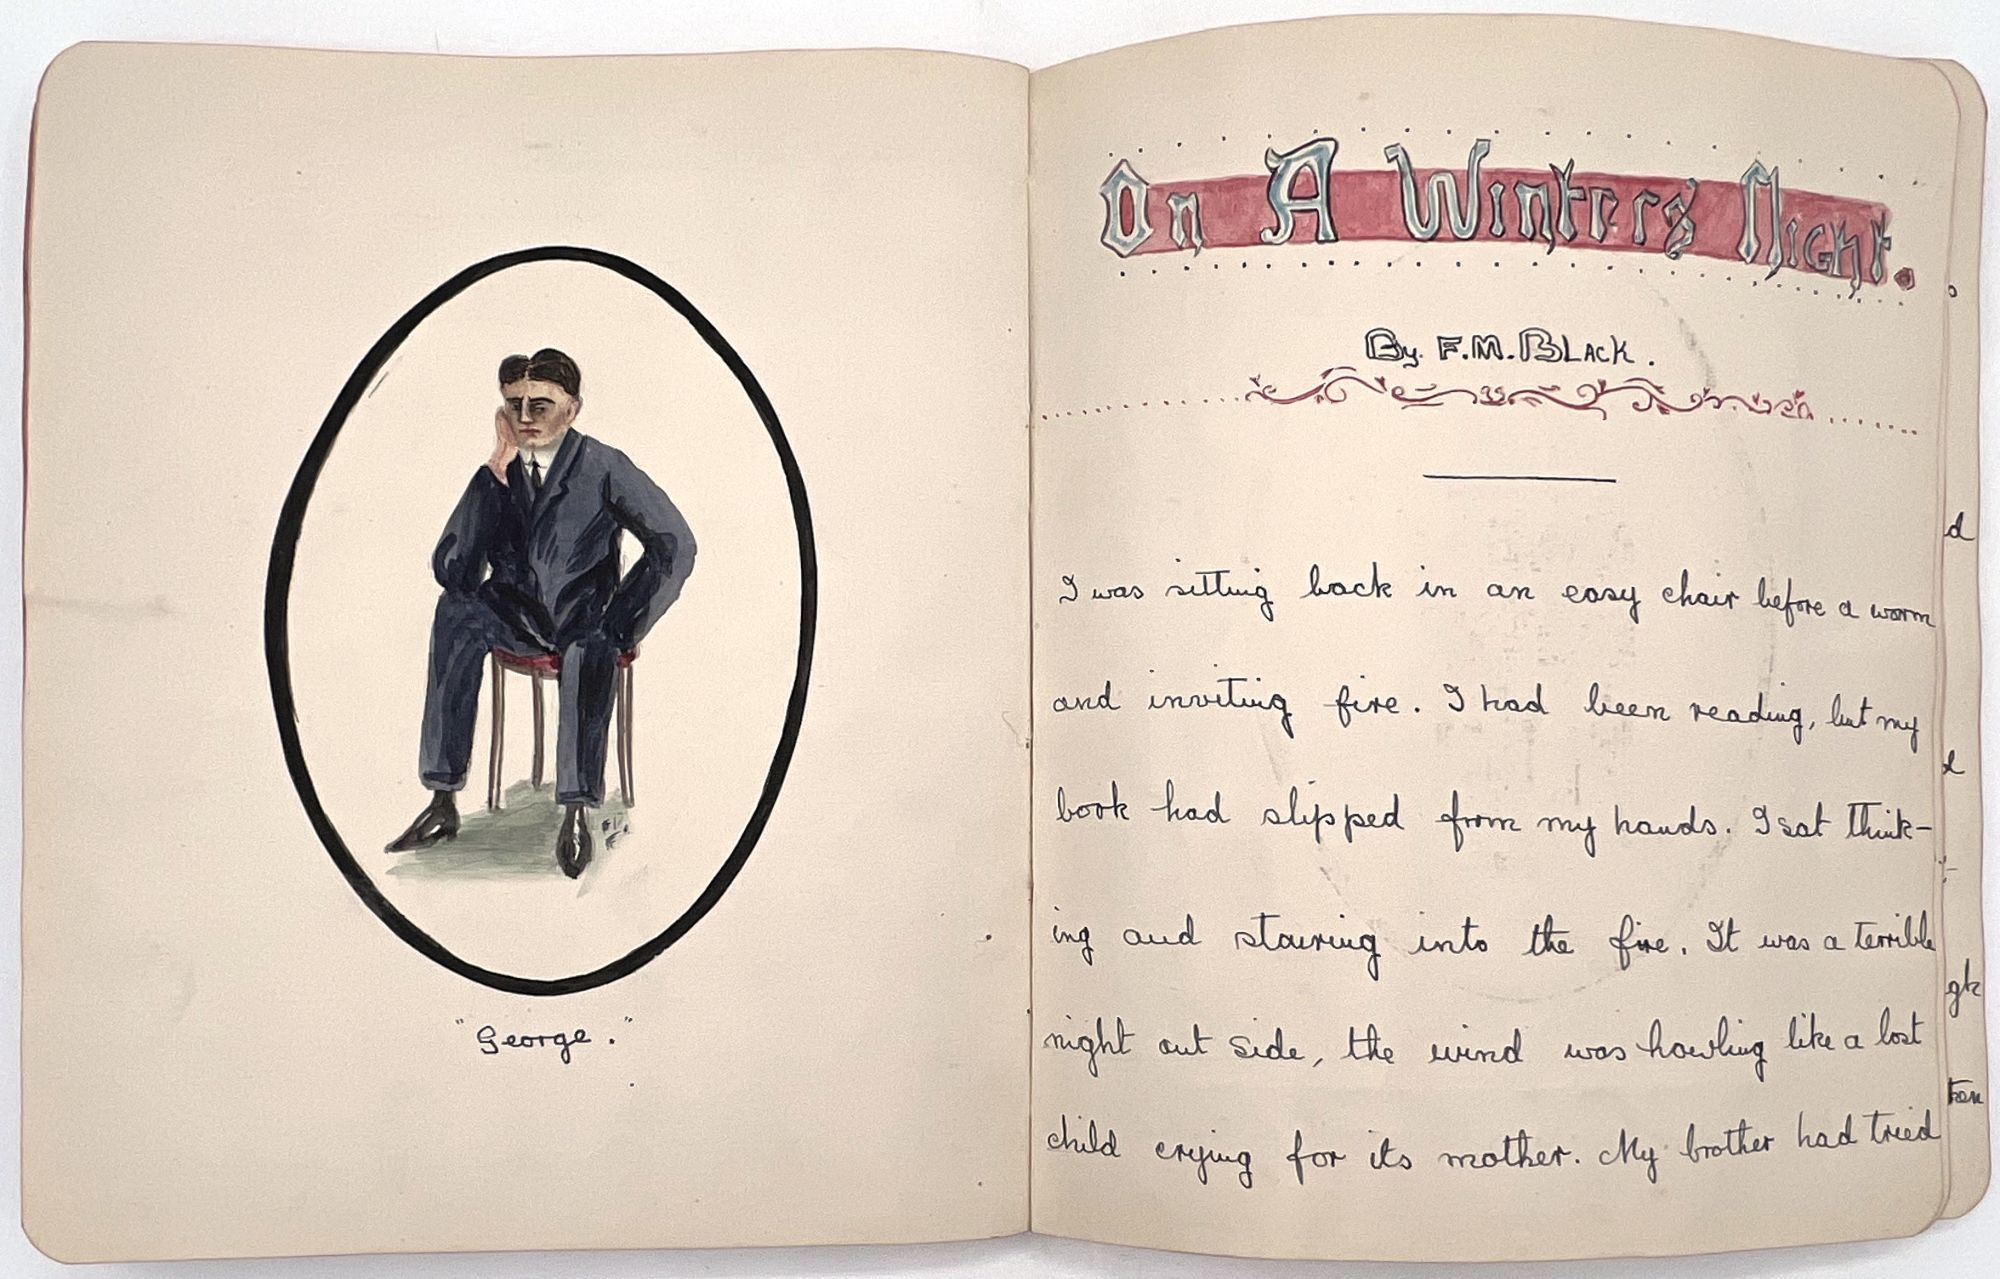 "George."
On A Winters Night.
By F.M. Black.
I was sitting back in an easy chair before a warm
and inviting fire. I had been reading, but my
book had slipped from my hands. I sat think-
ing and stairing into the fire. It was a terrible
night out side, the wind was howling like a lost
child crying for its mother. My brother had tried
d
gh
ken